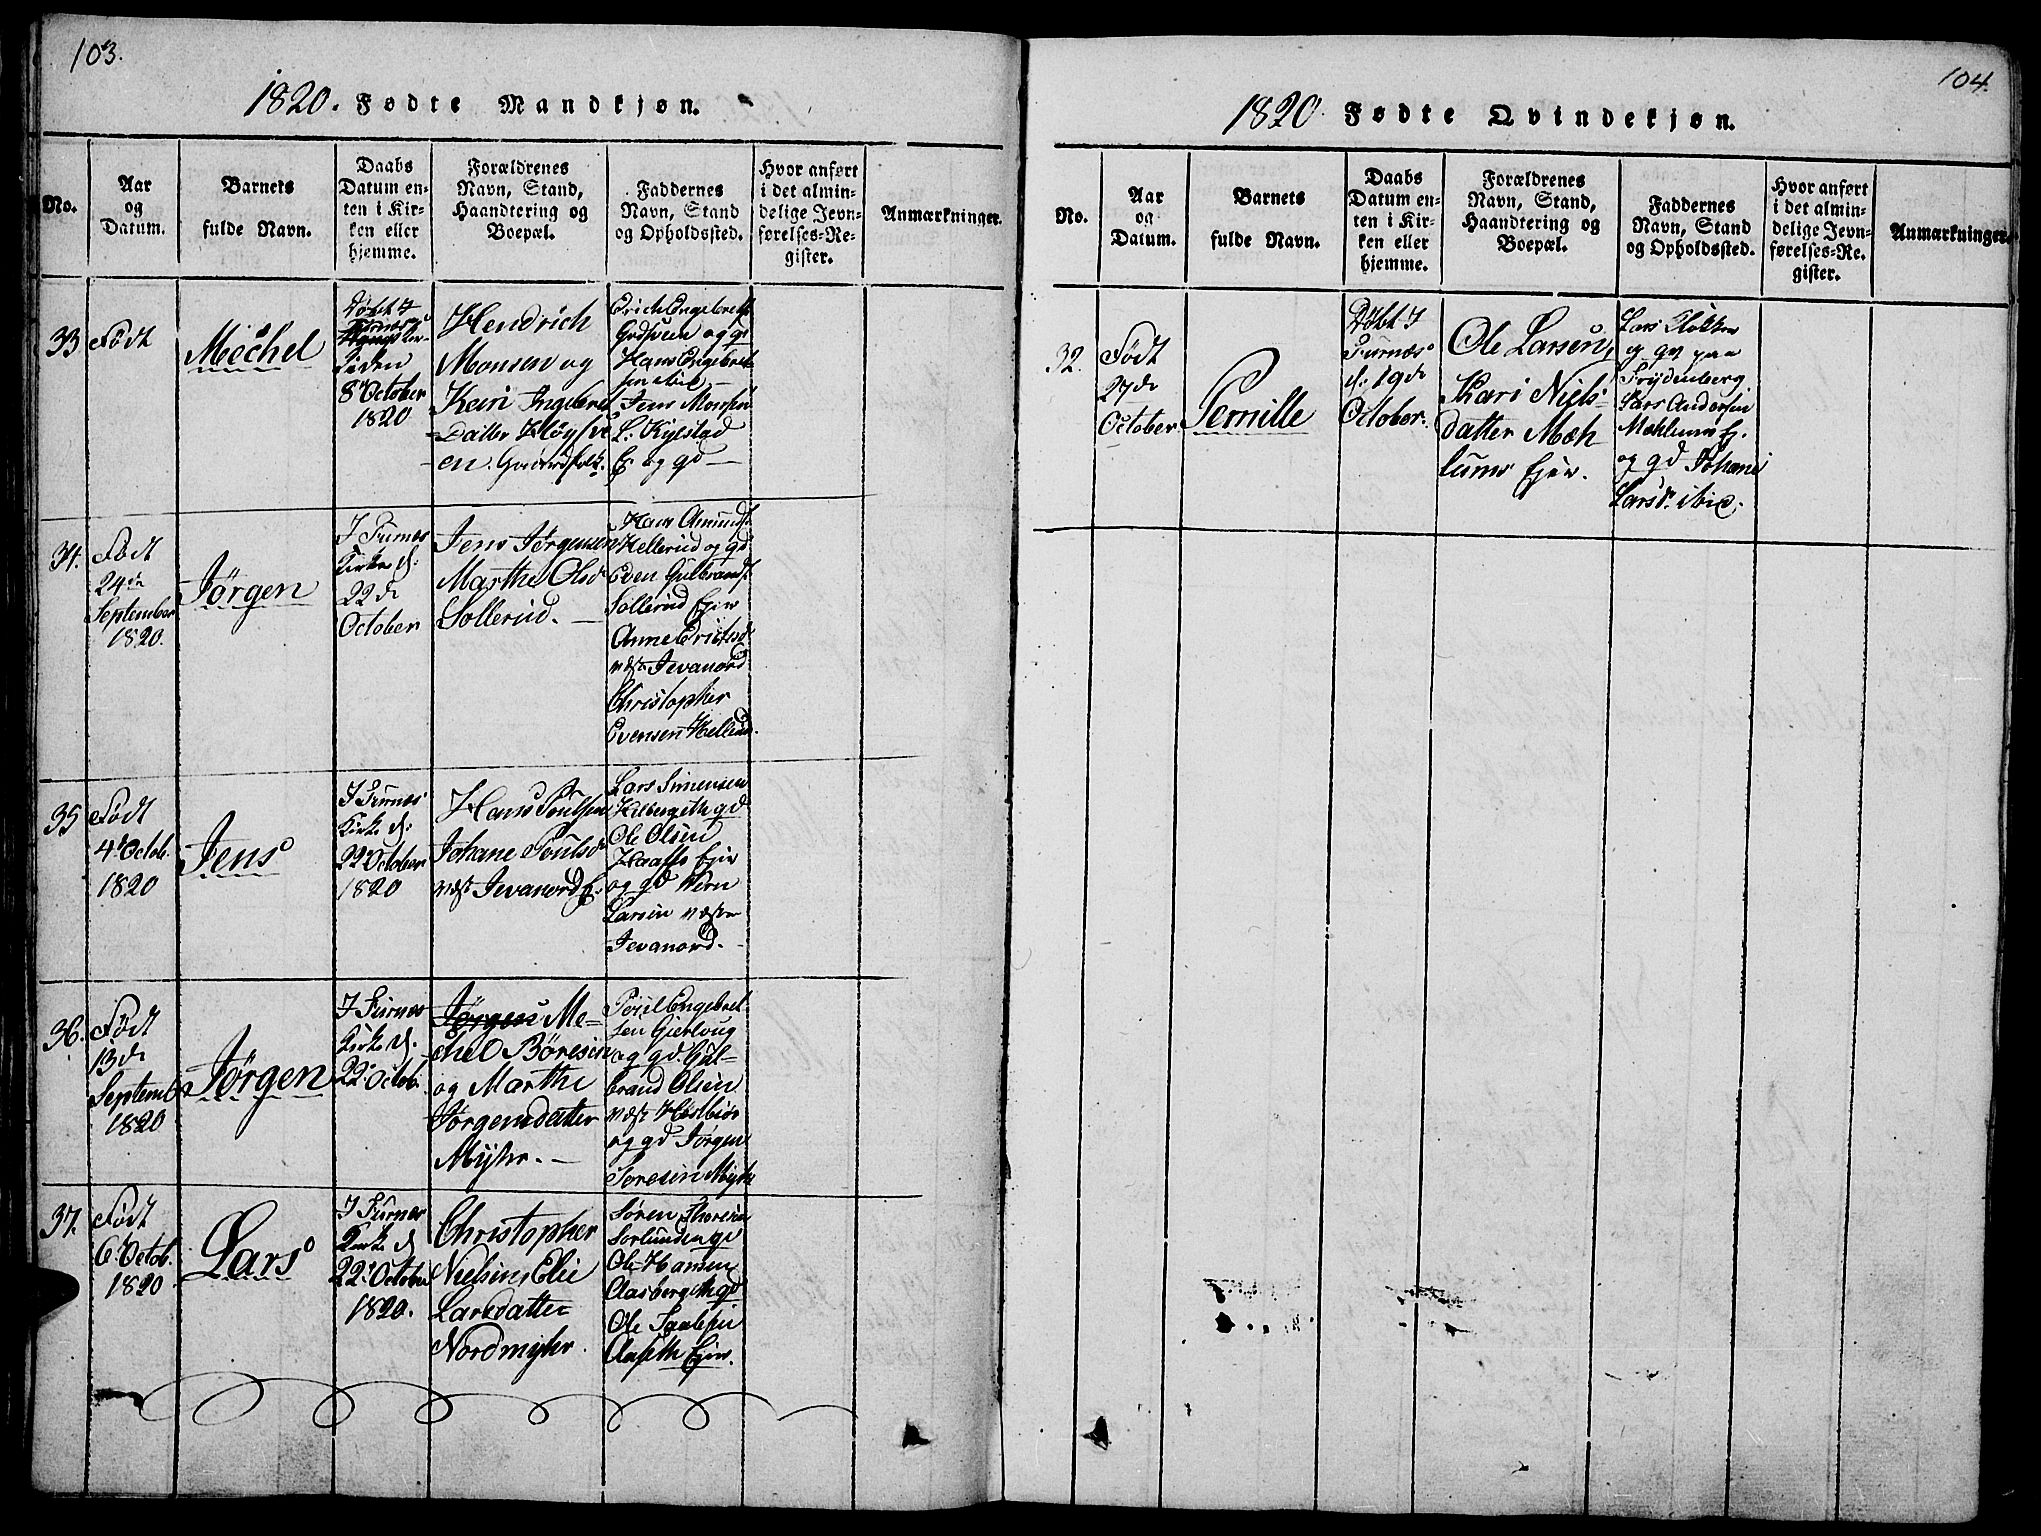 103.
1820. Fødte Mandkjøn.
No.
Aar
og
Datum.
Barnets
fulde Navn.
Daabs
Datum en-
ten i Kir-
ken eller
hjemme.
Forældrenes
Navn, Stand,
Haandtering og
Boepæl.
Faddernes
Navn, Stand
og Opholdssted.
Hvor anført
i det almin-
delige Jevn-
førelses-Re-
gister.
Anmærkninger.
33
Født
Mechel
Døbt
8de October
1820
Hendrich
Monsen og
Kari
en.
Erich Engebrets
og
Hans Engebret-
Jens
og gd
34.
Født
24de
September
1820.
Jørgen
I Furnes
Kirke d:
22de
October
Jens Jørgensen
Marthe Olsd
Sollerud.
Hans Amunds:
Hellerud og gd
Even Gulbrands:
Sollerud Ejer
Anne Erichsd
næst Jevanord
Christopher
Evensen Hellerud.
35
Født
4de Octob.
1820
Jens
I Furnes
Kirke d:
22de October
1820
Hans Poulsen
Johane Poulsd
næst Jevanord E:
Lars Simensen
gd
Ole Olsen
Ejer
og gd
Larsen næst
Jevanord.
36.
Født
13de
Septemb
1820
Jørgen
I Furnes
Kirke d.
22de Octob.
Jørgen Me-
chel Børesen
og Marthe
Jørgensdatter
Myhr.
Engebret-
sen
og gd. Gul-
brand Olsen
næst
og gd Jørgen
37.
Født
6de Octob.
1820
Lars
I Furnes
Kirke d
22de October
1820.
Christopher
Nielsen, Elie
Larsdatter
Nordmyhr.
Søren
Ole Hansen
gd
Ole
Ejer.
104.
1820. Fødte Qvindekjøn.
No.
Aar
og
Datum.
Barnets
fulde Navn.
Daabs
Datum en-
ten i Kir-
ken eller
hjemme.
Forældrenes
Navn, Stand,
Haandtering og
Boepæl.
Faddernes
Navn, Stand
og Opholdssted.
Hvor anført
i det almin-
delige Jevn-
førelses-Re-
gister.
Anmærkninger.
32.
Født
27de
October.
Pernille
Døbt I
Furnæs
d: 19de
October.
Ole Larsen,
Kari Niels-
datter Mæh-
lums Ejer.
Lars
og gd paa
Frydenberg.
Lars Andersen
Mæhlum Ej.
og gd Johane
Larsd. ibid.